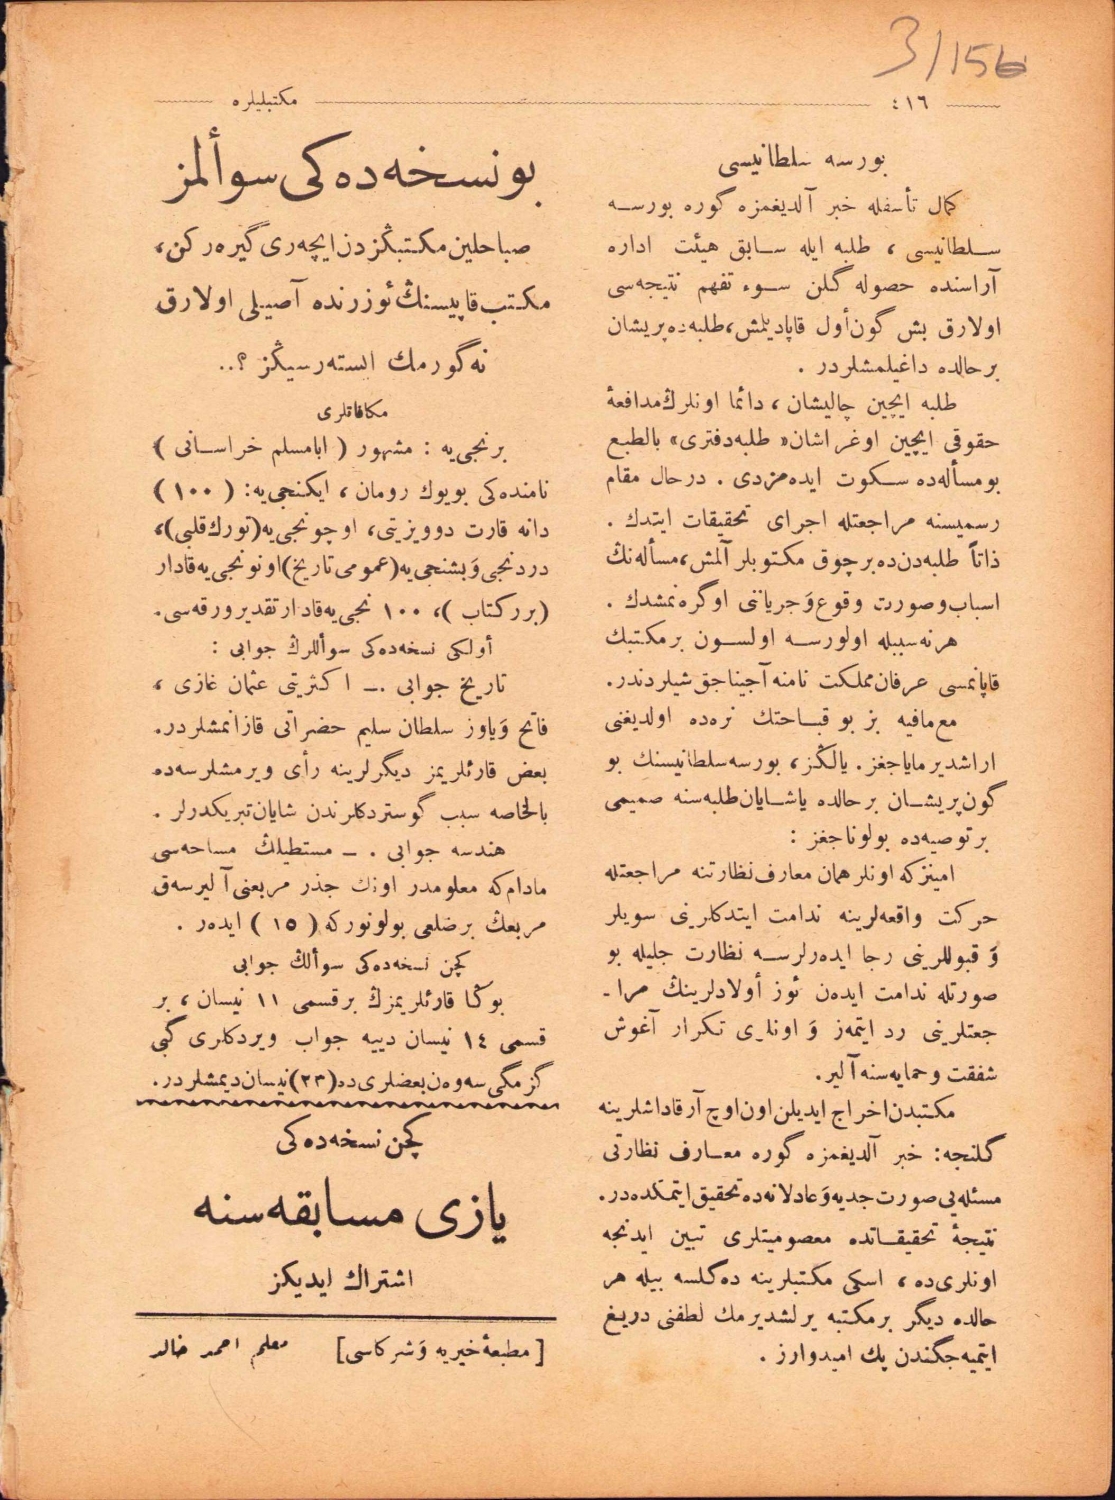 3/156
٤١٦
مكتبليلره
بورسه سلطانیسی
كمال تأسفله خبر آلدیغمزه گوره بورسه
سلطانیسی ، طلبه ایله سابق هیئت اداره
آراسنده حصوله گلن سوء تفهم نتیجه‌سی
اولارق بش گون أول قاپادیلمش، طلبه‌ده پریشان
بر حالده داغیلمشلردر .
طلبه ایچین چالیشان ، دائما اونلرڭ مدافعۀ
حقوقی ایچین اوغراشان « طلبه دفتری » بالطبع
بو مسأله‌ده سكوت ایده‌مزدی . درحال مقام
رسمیسنه مراجعتله اجرای تحقیقات ایتدك .
ذاتاً طلبه‌دن‌ده بر چوق مكتوبلر آلمش، مسأله‌نڭ
اسباب وصورت وقوع وَ جریاننی اوگره‌نمشدك .
هر نه سببله اولورسه اولسون بر مكتبك
قاپانمسی عرفان مملكت نامنه آجیناجق شیلردندر.
مع‌مافیه بز بو قباحتك نره‌ده اولدیغنی
اراشدیرمایاجغز . یالڭز ، بورسه سلطانیسنك بو
گون پریشان بر حالده یاشایان طلبه‌سنه صمیمی
بر توصیه‌ده بولوناجغز :
امینزكه اونلر همان معارف نظارتنه مراجعتله
حركت واقعه‌لرینه ندامت ایتدكلرینی سویلر
وَ قبوللرینی رجا ایده‌رلرسه نظارت جلیله بو
صورتله ندامت ایده‌ن ئوز أولادلرینڭ مرا-
جعتلرینی رد ایتمه‌ز وَ اونلری تكرار آغوش
شفقت وحمایه‌سنه آلیر.
مكتبدن اخراج ایدیلن اون اوچ آرقاداشلرینه
گلنجه: خبر آلدیغمزه گوره معارف نظارتی
مسئله‌یی صورت جدیه وَ عادلانه‌ده تحقیق ایتمكده‌در.
نتیجۀ تحقیقاتده معصومیتلری تبین ایدنجه
اونلری‌ده ، اسكی مكتبلرینه ده‌گلسه بیله هر
حالده دیگر بر مكتبه یرلشدیرمك لطفنی دریغ
ایتمیه‌جگندن پك امیدوارز .
بو نسخه‌ده‌كی سوألمز
صباحلین مكتبڭزدن ایچه‌ری گیره‌ركن،
مكتب قاپیسنڭ ئوزرنده آصیلی اولارق
نه گورمك ایسته‌رسیڭز ؟..
مكافاتلری
برنجی‌یه : مشهور ( ابامسلم خراسانی )
نامنده‌كی بویوك رومان ، ایكنجی‌یه: ( ١٠٠ )
دانه قارت دوویزیتی، اوچونجی‌یه (تورك قلبی)،
دردنجی وَ بشنجی‌یه (عمومی تاریخ) اونونجی‌یه قادار
(برر كتاب )، ١٠٠ نجی‌یه قادار تقدیر ورقه‌سی.
أولكی نسخه‌ده‌كی سوأللرڭ جوابی :
تاریخ جوابی .ـ اكثریتی عثمان غازی ،
فاتح وَیاوز سلطان سلیم حضراتی قازانمشلردر.
بعض قارئلریمز دیگرلرینه رأی ویرمشلرسه‌ده
بالخاصه سبب گوستردكلرندن شایان تبریكدرلر .
هندسه جوابی . ـ مستطیلڭ مساحه‌سی
مادام كه معلومدر اونك جذر مربعنی آلیرسه‌ق
مربعڭ بر ضلعی بولونوركه ( ١٥ ) ایده‌ر .
كچن نسخه‌ده‌كی سوألڭ جوابی
بوڭا قارئلریمزڭ بر قسمی ١١ نیسان ، بر
قسمی ١٤ نیسان دییه جواب ویردكلری گبی
گزمگی سه‌وه‌ن بعضلری‌ده (٢٣) نیسان دیمشلردر.
كچن نسخه‌ده‌كی
یازی مسابقه‌سنه
اشتراك ایدیكز
[ مطبعۀ خیریه وَ شركاسی ] معلم احمد خالد